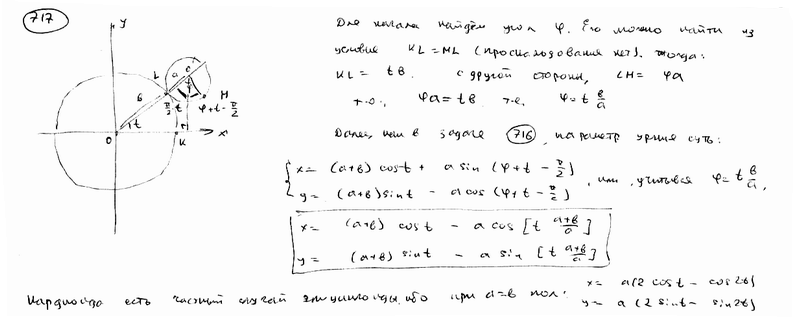 717
y
L
a
O'
φ
M
φ+t-π/2
в
π/2
t
t
O
K
x
Для начала найдём угол φ. Его можно найти из
условия KL = ML (проскальзования нет). тогда:
KL = tв. с другой стороны, LM = φa
т.о., φa = tв. т.е. φ = t в/a
Далее, как в задаче 716, параметр. ур-ния суть:
x = (a+в) cos t + a sin (φ+t-π/2)
y = (a+в) sin t - a cos (φ+t-π/2) , или, учитывая φ = t в/a,
x = (a+в) cos t - a cos [t (a+в)/a]
y = (a+в) sin t - a sin [t (a+в)/a]
Кардиоида есть частный случай эпициклоиды, ибо при a=в пол: x = a(2 cos t - cos 2t)
y = a(2 sin t - sin 2t)